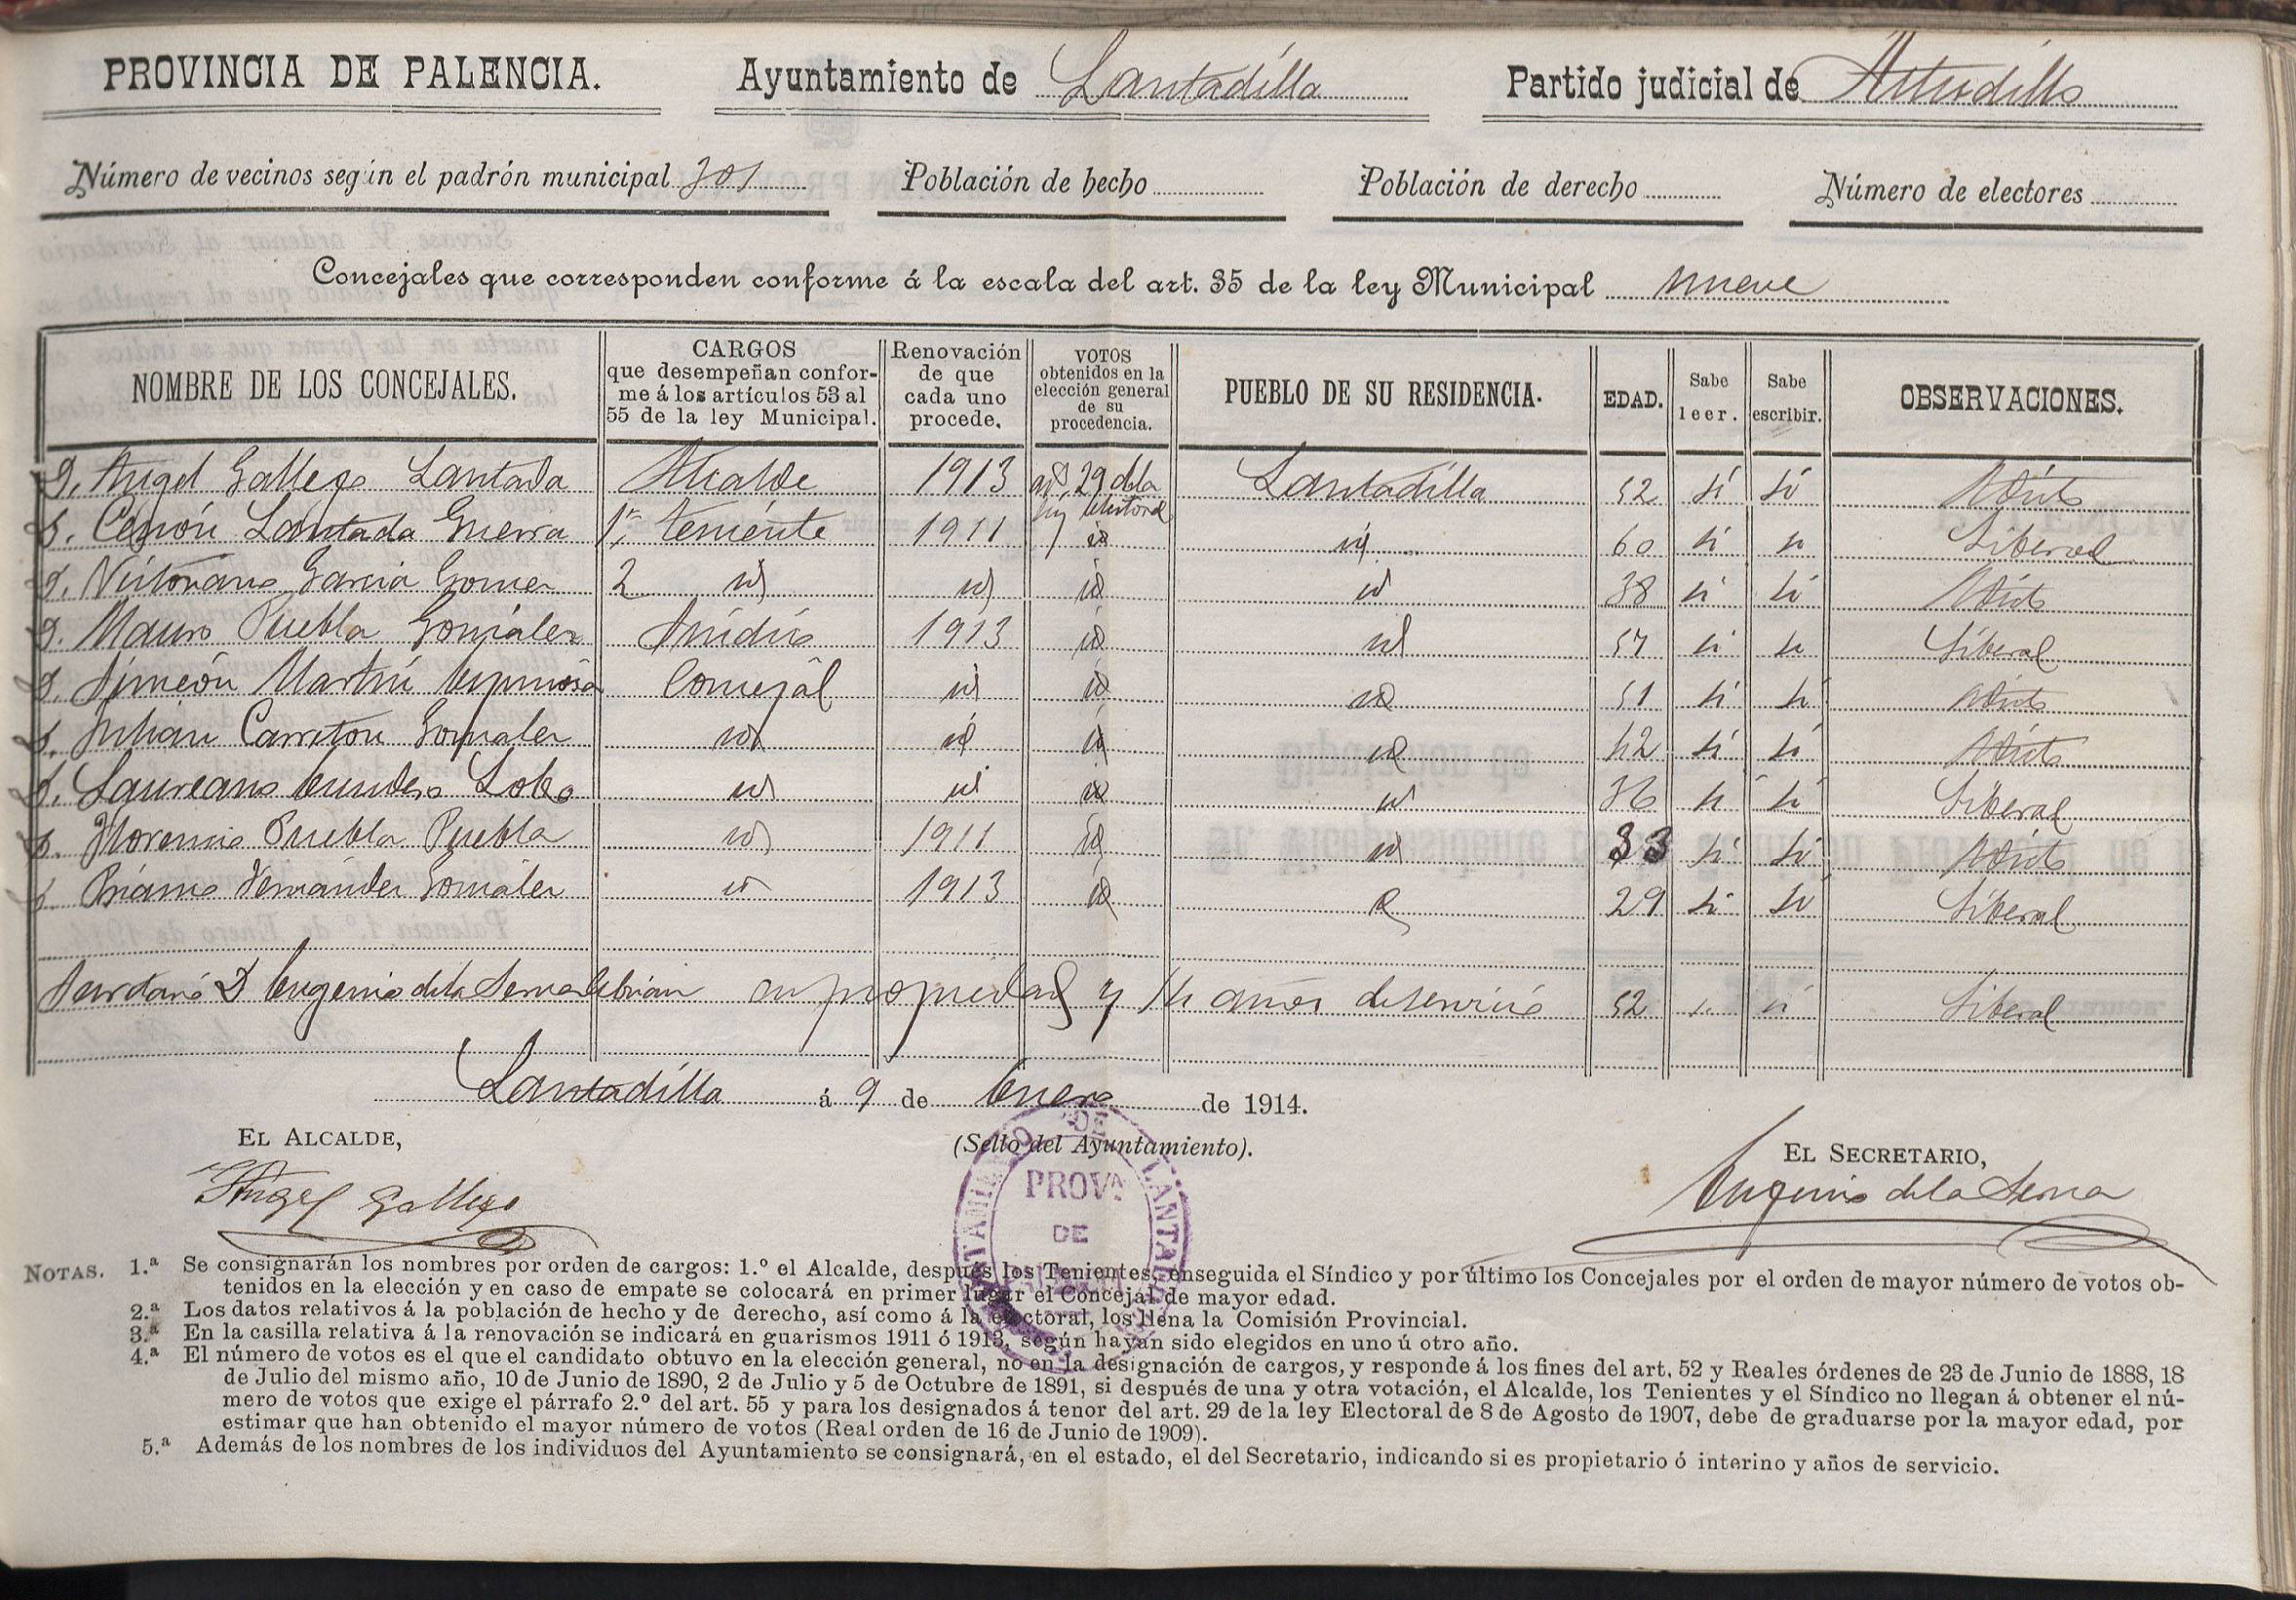 PROVINCIA DE PALENCIA. Ayuntamiento de Lantadilla Partido judicial de Astudillo
Número de vecinos según el padrón municipal 301 Población de hecho Población de derecho Número de electores
Concejales que corresponden conforme á la escala del art. 35 de la ley Municipal nueve
NOMBRE DE LOS CONCEJALES. CARGOS que desempeñan conforme á los artículos 53 al 55 de la ley Municipal. Renovación de que cada uno procede. VOTOS obtenidos en la elección general de su procedencia. PUEBLO DE SU RESIDENCIA. EDAD. Sabe leer. Sabe escribir. OBSERVACIONES.
D. Angel Gallego Lantada Alcalde 1913 art. 29 de la ley electoral Lantadilla 52 si si Adicto
D. Cenón Lantada Guerra 1er teniente 1911 id id 60 si si Liberal
D. Victoriano Garcia Gomez 2 id id id id 38 si si Adicto
D. Mauro Puebla González Sindico 1913 id id 57 si si Liberal
D. Simeón Martín Espinosa Concejal id id id 51 si si Adicto
D. Julian Carreton Gonzalez id id id id 42 si si Adicto
D. Laureano Cendero Lobo id id id id 36 si si Liberal
D. Florencio Puebla Puebla id 1911 id id 33 si si Adicto
D. Priamo Fernández González id 1913 id id 29 si si Liberal
Secretario D Eugenio de la Serna Cebrian en propiedad y 14 años de servicio 52 si si Liberal
Lantadilla á 9 de Enero de 1914.
EL ALCALDE, (Sello del Ayuntamiento). EL SECRETARIO,
Angel Gallego Eugenio de la Serna
AYUNTAMIENTO DE LANTADILLA
PROVA
DE
NOTAS. 1.ª Se consignarán los nombres por orden de cargos: 1.º el Alcalde, después los Tenientes, enseguida el Síndico y por último los Concejales por el orden de mayor número de votos ob-
tenidos en la elección y en caso de empate se colocará en primer lugar el Concejal de mayor edad.
2.ª Los datos relativos á la población de hecho y de derecho, así como á la electoral, los llena la Comisión Provincial.
3.ª En la casilla relativa á la renovación se indicará en guarismos 1911 ó 1913, según hayan sido elegidos en uno ú otro año.
4.ª El número de votos es el que el candidato obtuvo en la elección general, no en la designación de cargos, y responde á los fines del art. 52 y Reales órdenes de 23 de Junio de 1888, 18
de Julio del mismo año, 10 de Junio de 1890, 2 de Julio y 5 de Octubre de 1891, si después de una y otra votación, el Alcalde, los Tenientes y el Síndico no llegan á obtener el nú-
mero de votos que exige el párrafo 2.º del art. 55 y para los designados á tenor del art. 29 de la ley Electoral de 8 de Agosto de 1907, debe de graduarse por la mayor edad, por
estimar que han obtenido el mayor número de votos (Real orden de 16 de Junio de 1909).
5.ª Además de los nombres de los individuos del Ayuntamiento se consignará, en el estado, el del Secretario, indicando si es propietario ó interino y años de servicio.